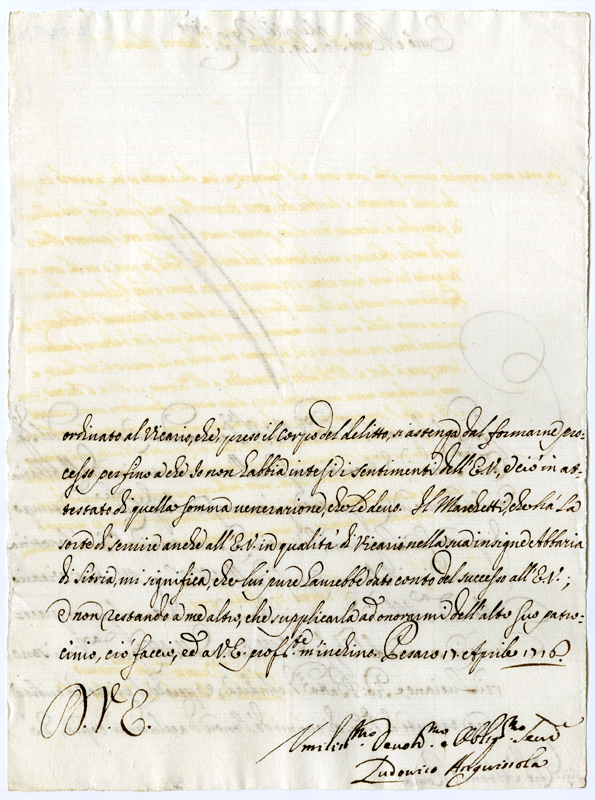 ordinato al Vicario, che, preso il Corpo del delitto, si astenga dal formarne pro-
cesso, per fino a che Io non habbia intesi di sentimenti dell'E.V., e ciò in at-
testato di quella somma venerazione, che Le devo. Il Marchetti, che hà la
sorte di servire anche all'E.V. in qualità di Vicario nella sua insigne Abbazia
di Sitria, mi significa, che lui pure haurebbe dato conto del successo all'E.V.;
E non restando a me altro, che supplicarla ad onorarmi dell'alto suo patro-
cinio, ciò faccio, ed a V.E. prof.te m'inchino. Pesaro 17. Aprile 1716.
D. V. E.
Umiliss.mo Devot.mo e Oblig.mo Serv.e
Ludovico Anguissola